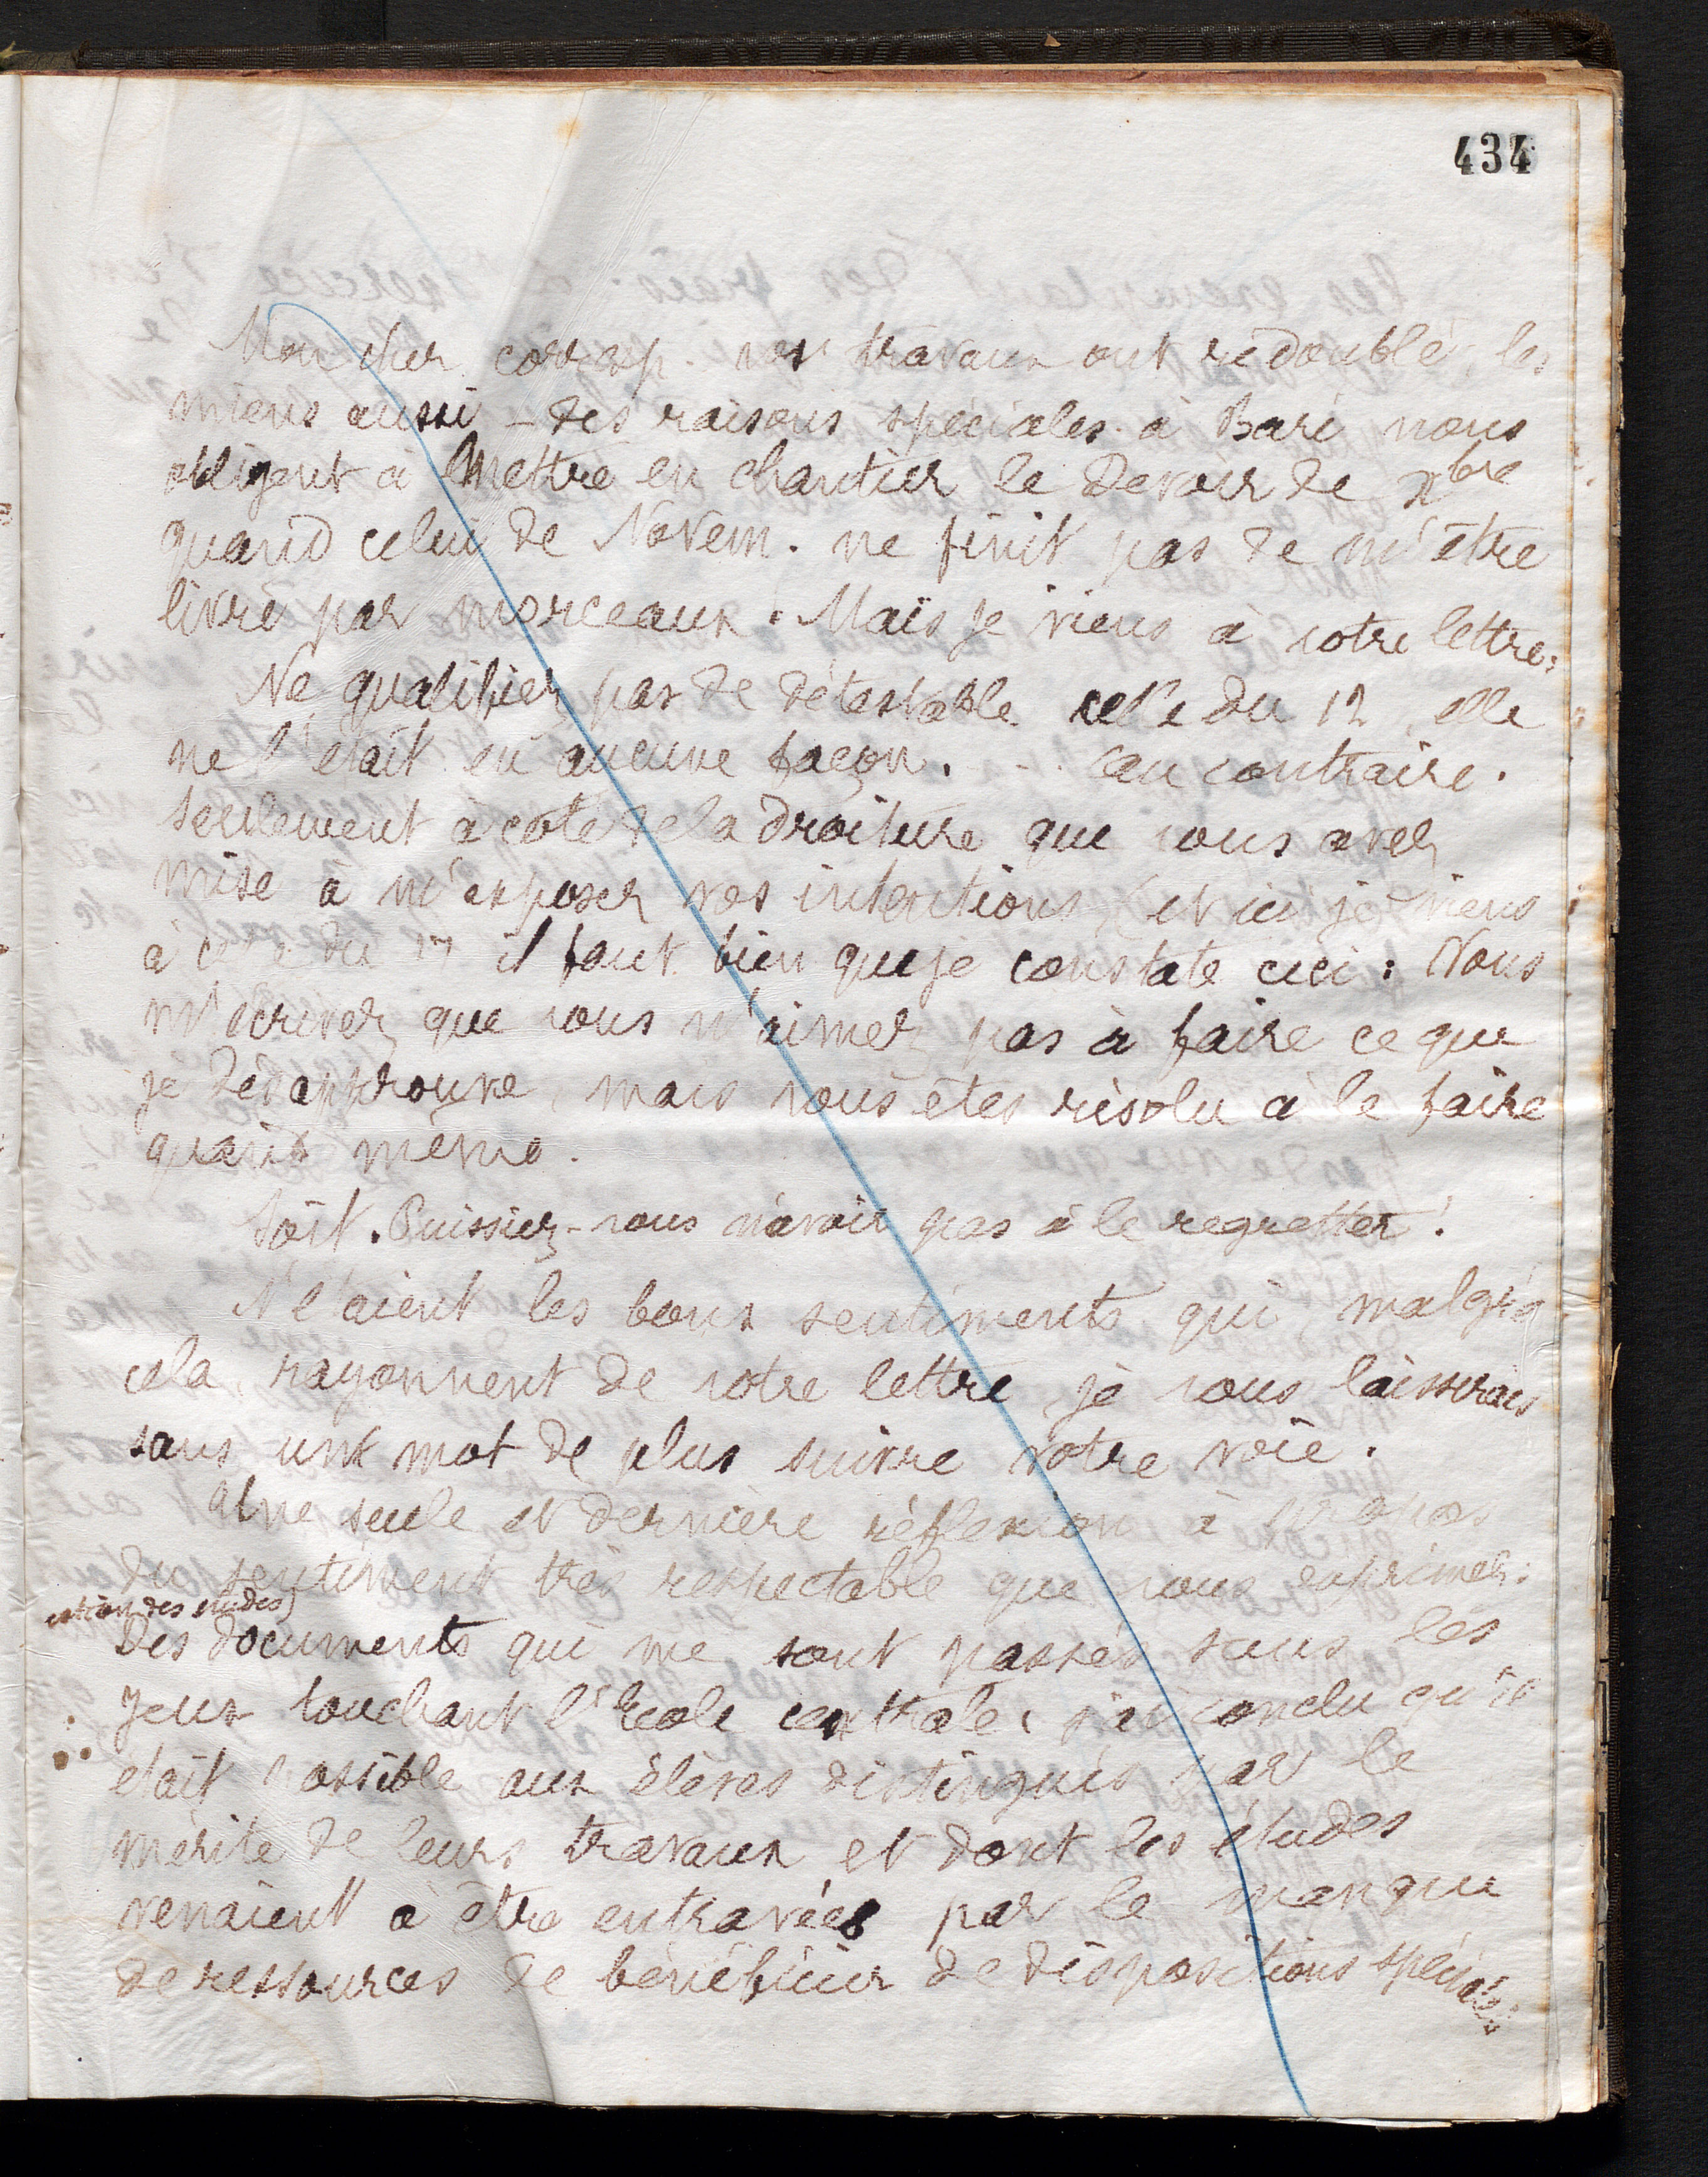 434
Mon cher corresp. vos travaux ont redoublé, les
miens aussi – des raisons spéciales à Baré nous
obligent à mettre en chantier le Devoir de Xbre
quand celui de Novem. ne finit pas de m'être
livré par morceaux. Mais je viens à votre lettre:
Ne qualifiez pas de détestable celle du 12, elle
ne l'était en aucune façon. ... au contraire.
Seulement à côté de la droiture que vous avez
mise à m'exposer vos intentions, (et ici je viens
à celle du 17 il faut bien que je constate ceci: Vous
m'écrivez que vous n'aimez pas à faire ce que
je désapprouve, mais vous êtes résolu à le faire
quand même.
Soit. Puissiez-vous n'avoir pas à le regretter!
N'étaient les bons sentiments qui, malgré
cela, rayonnent de votre lettre, je vous laisserais
sans un mot de plus suivre votre voie.
Une seule et dernière réflexion à propos
du sentiment très respectable que vous exprimez:
des études)
Des documents qui me sont passés sous les
yeux touchant l'école centrale, j'ai conclu qu'il
était possible aux élèves distingués par le
mérite de leurs travaux et dont les études
venaient à être entravées par le manque
de ressources de bénéficier de dispositions spéciales